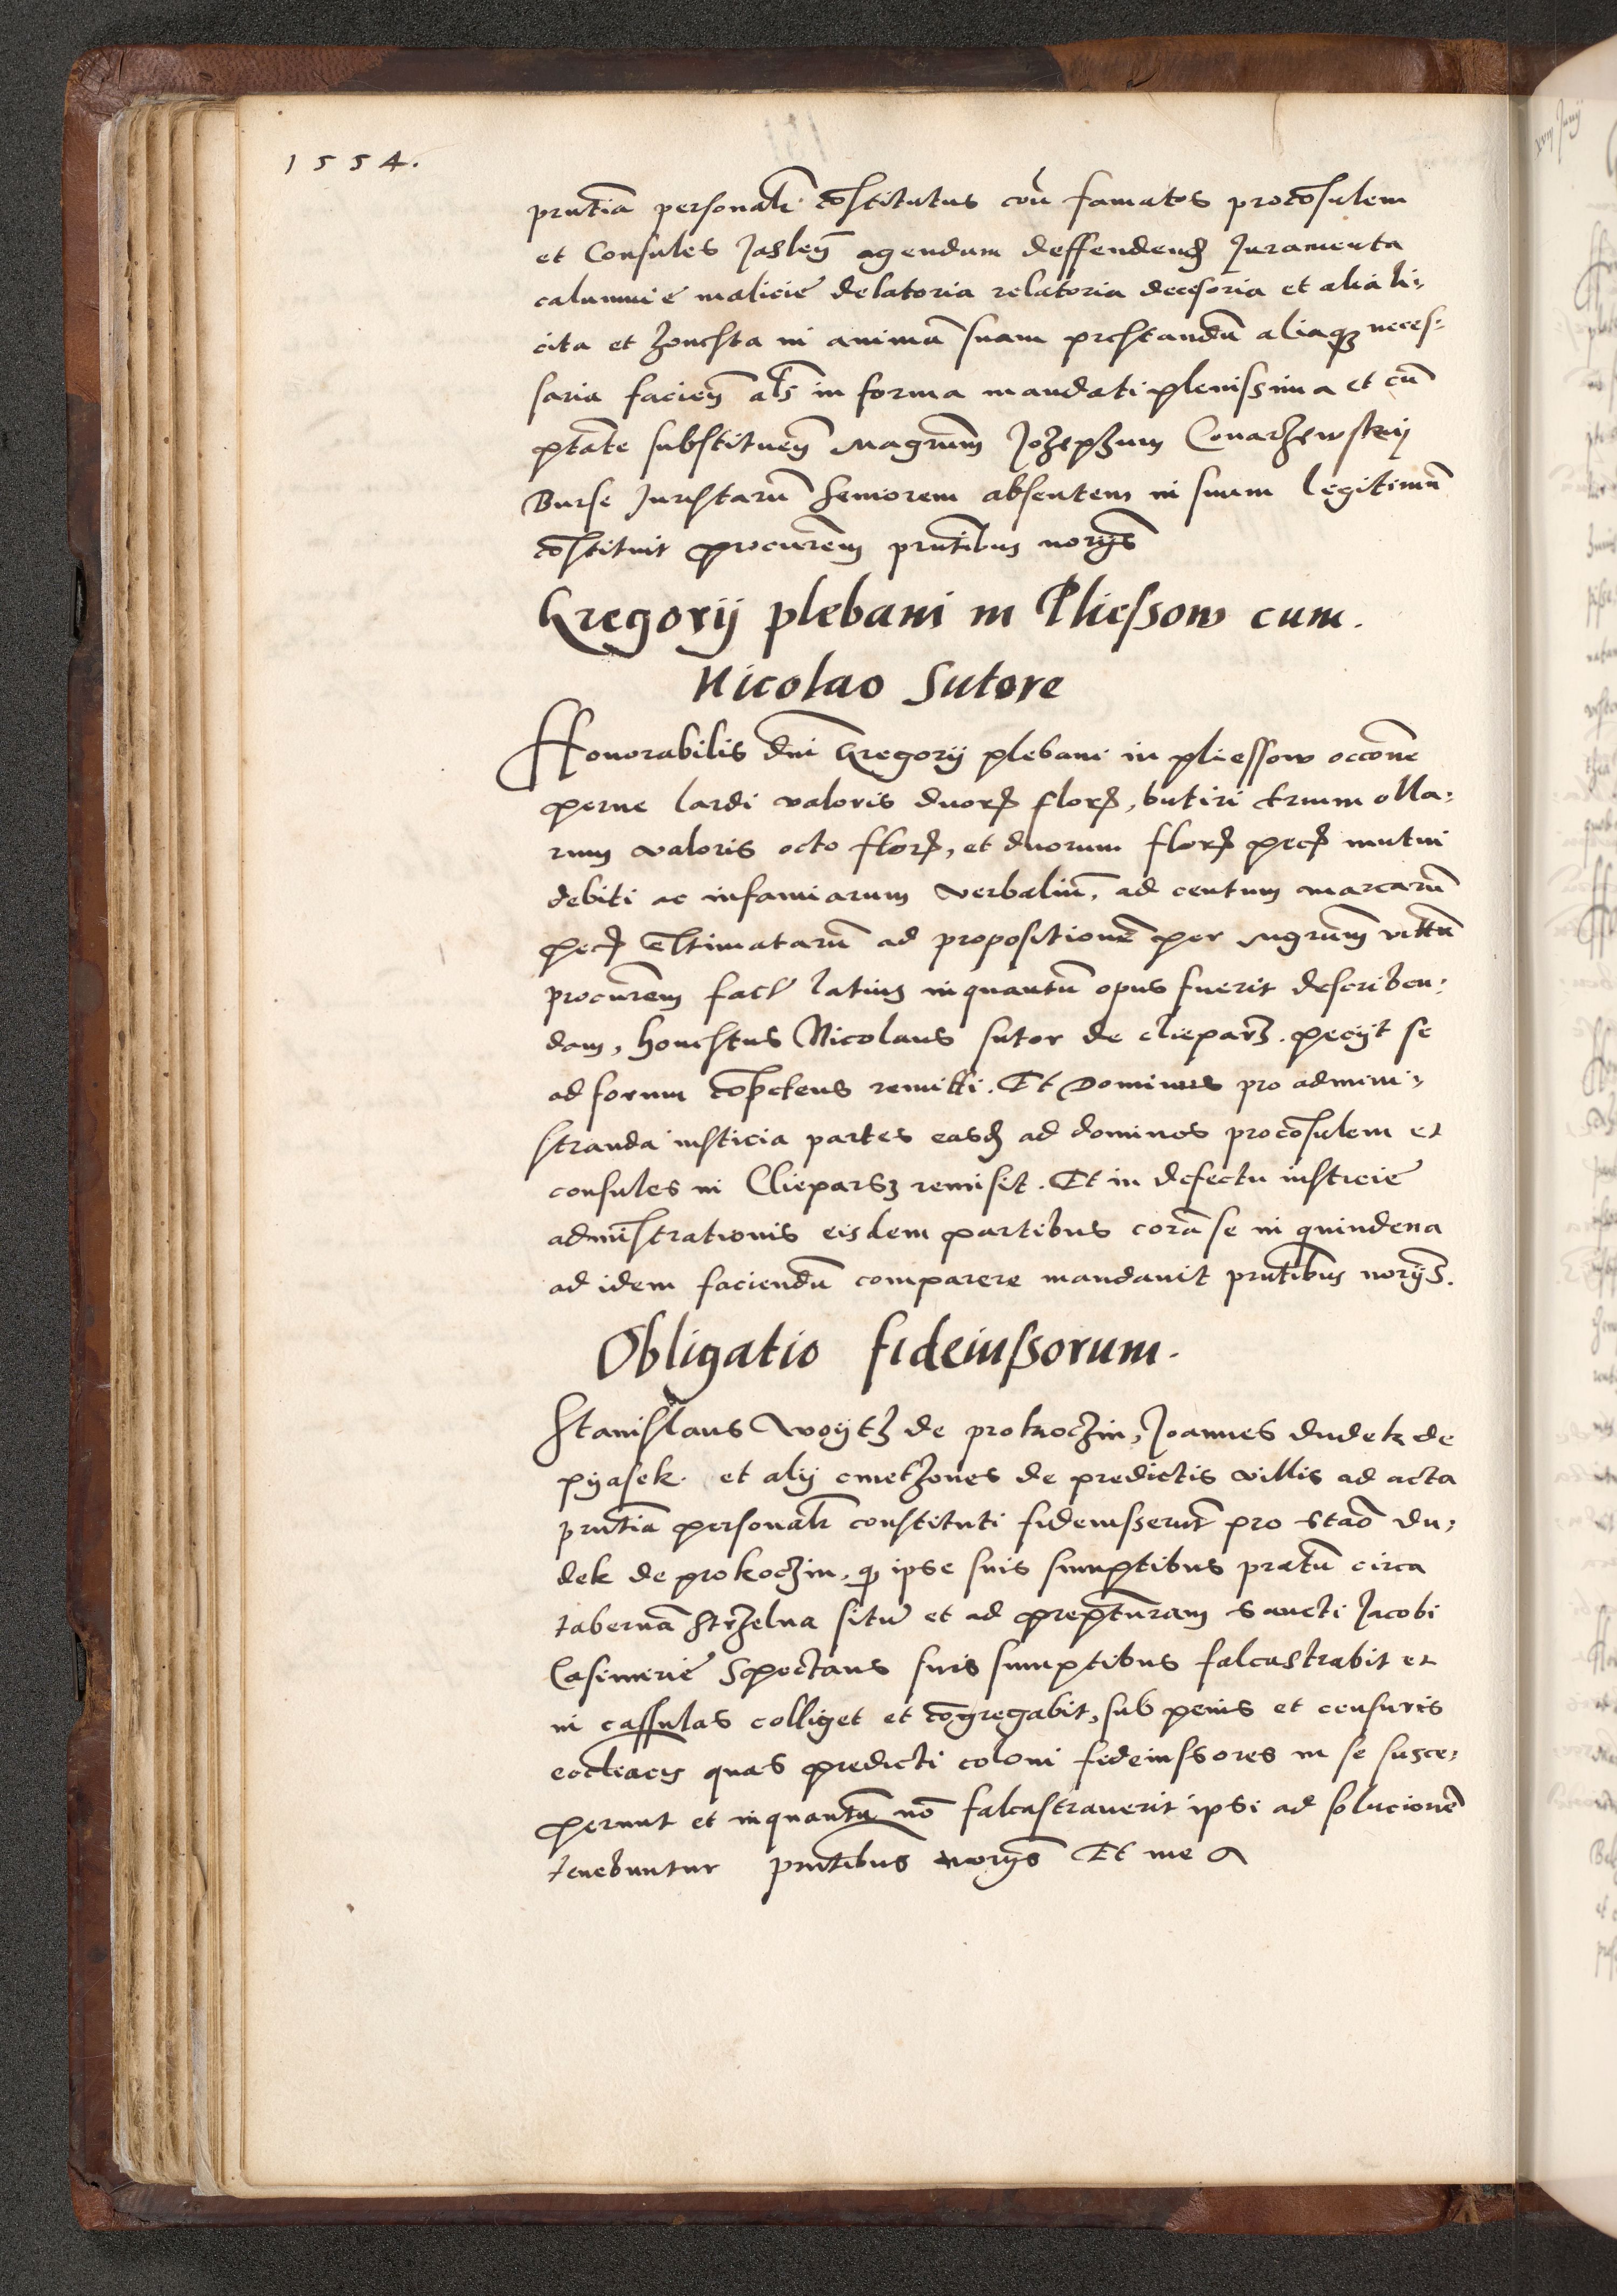 1554.
prntia personalr costitutus con famatos procosulem
et Consules Jasłen agendum deffendend Juramenta
calumnie malicie delatoria relatoria decesoria et alia li=
cita et honesta in anima suam prestandu aliaq neces=
saria facien als in forma mandati plenissima et cu
ptate substituen Magrum Jozephum Conarzewskij
Burse Juristaru Seniorem absentem in suum legitimu
costituit procurem prntibus noryis
Gregorij plebani in Pliessow cum.
Nicolao Sutore
Honorabilis dni Gregorij plebani in pliessow occone
perne lardi valoris duor flor, butiri trium olla=
rum valoris octo flor, et duorum flor pec mutui
debiti ac infamiarum verbaliu, ad centum marcaru
pec estimataru ad propositione per Mgrum
procurem fact latius inquantu opus fuerit describen=
dam, honestus Nicolaus sutor de clieparz. peciit se
ad forum copetens remitti. Et Dominus pro admini=
stranda iusticia partes easd ad dominos procosulem et
consules in Clieparsz remisit. Et in defectu iusticie
administrationis eisdem partibus cora se in quindena
ad idem faciendu comparere mandavit prntibus noryis.
Obligatio fideiussorum.
Stanislaus Woytz de prokoczin, Joannes dudek de
pyasek. et alij cmethones de predictis villis ad acta
prntia personalr constituti fideiusserut pro Stao du=
dek de prokoczin, q ipse suis sumptibus pratu circa
taberna Strzelna situ et ad prepturam Sancti Jacobi
Casimirie Spectans suis sumptibus falcastrabit et
in cassulas colliget et cogregabit, sub penis et censuris
eccliacis quas predicti coloni fideiussores in se susce=
perunt et inquantu no falcastraverit ipsi ad solucione
tenebuntur prntibus noryis Et me